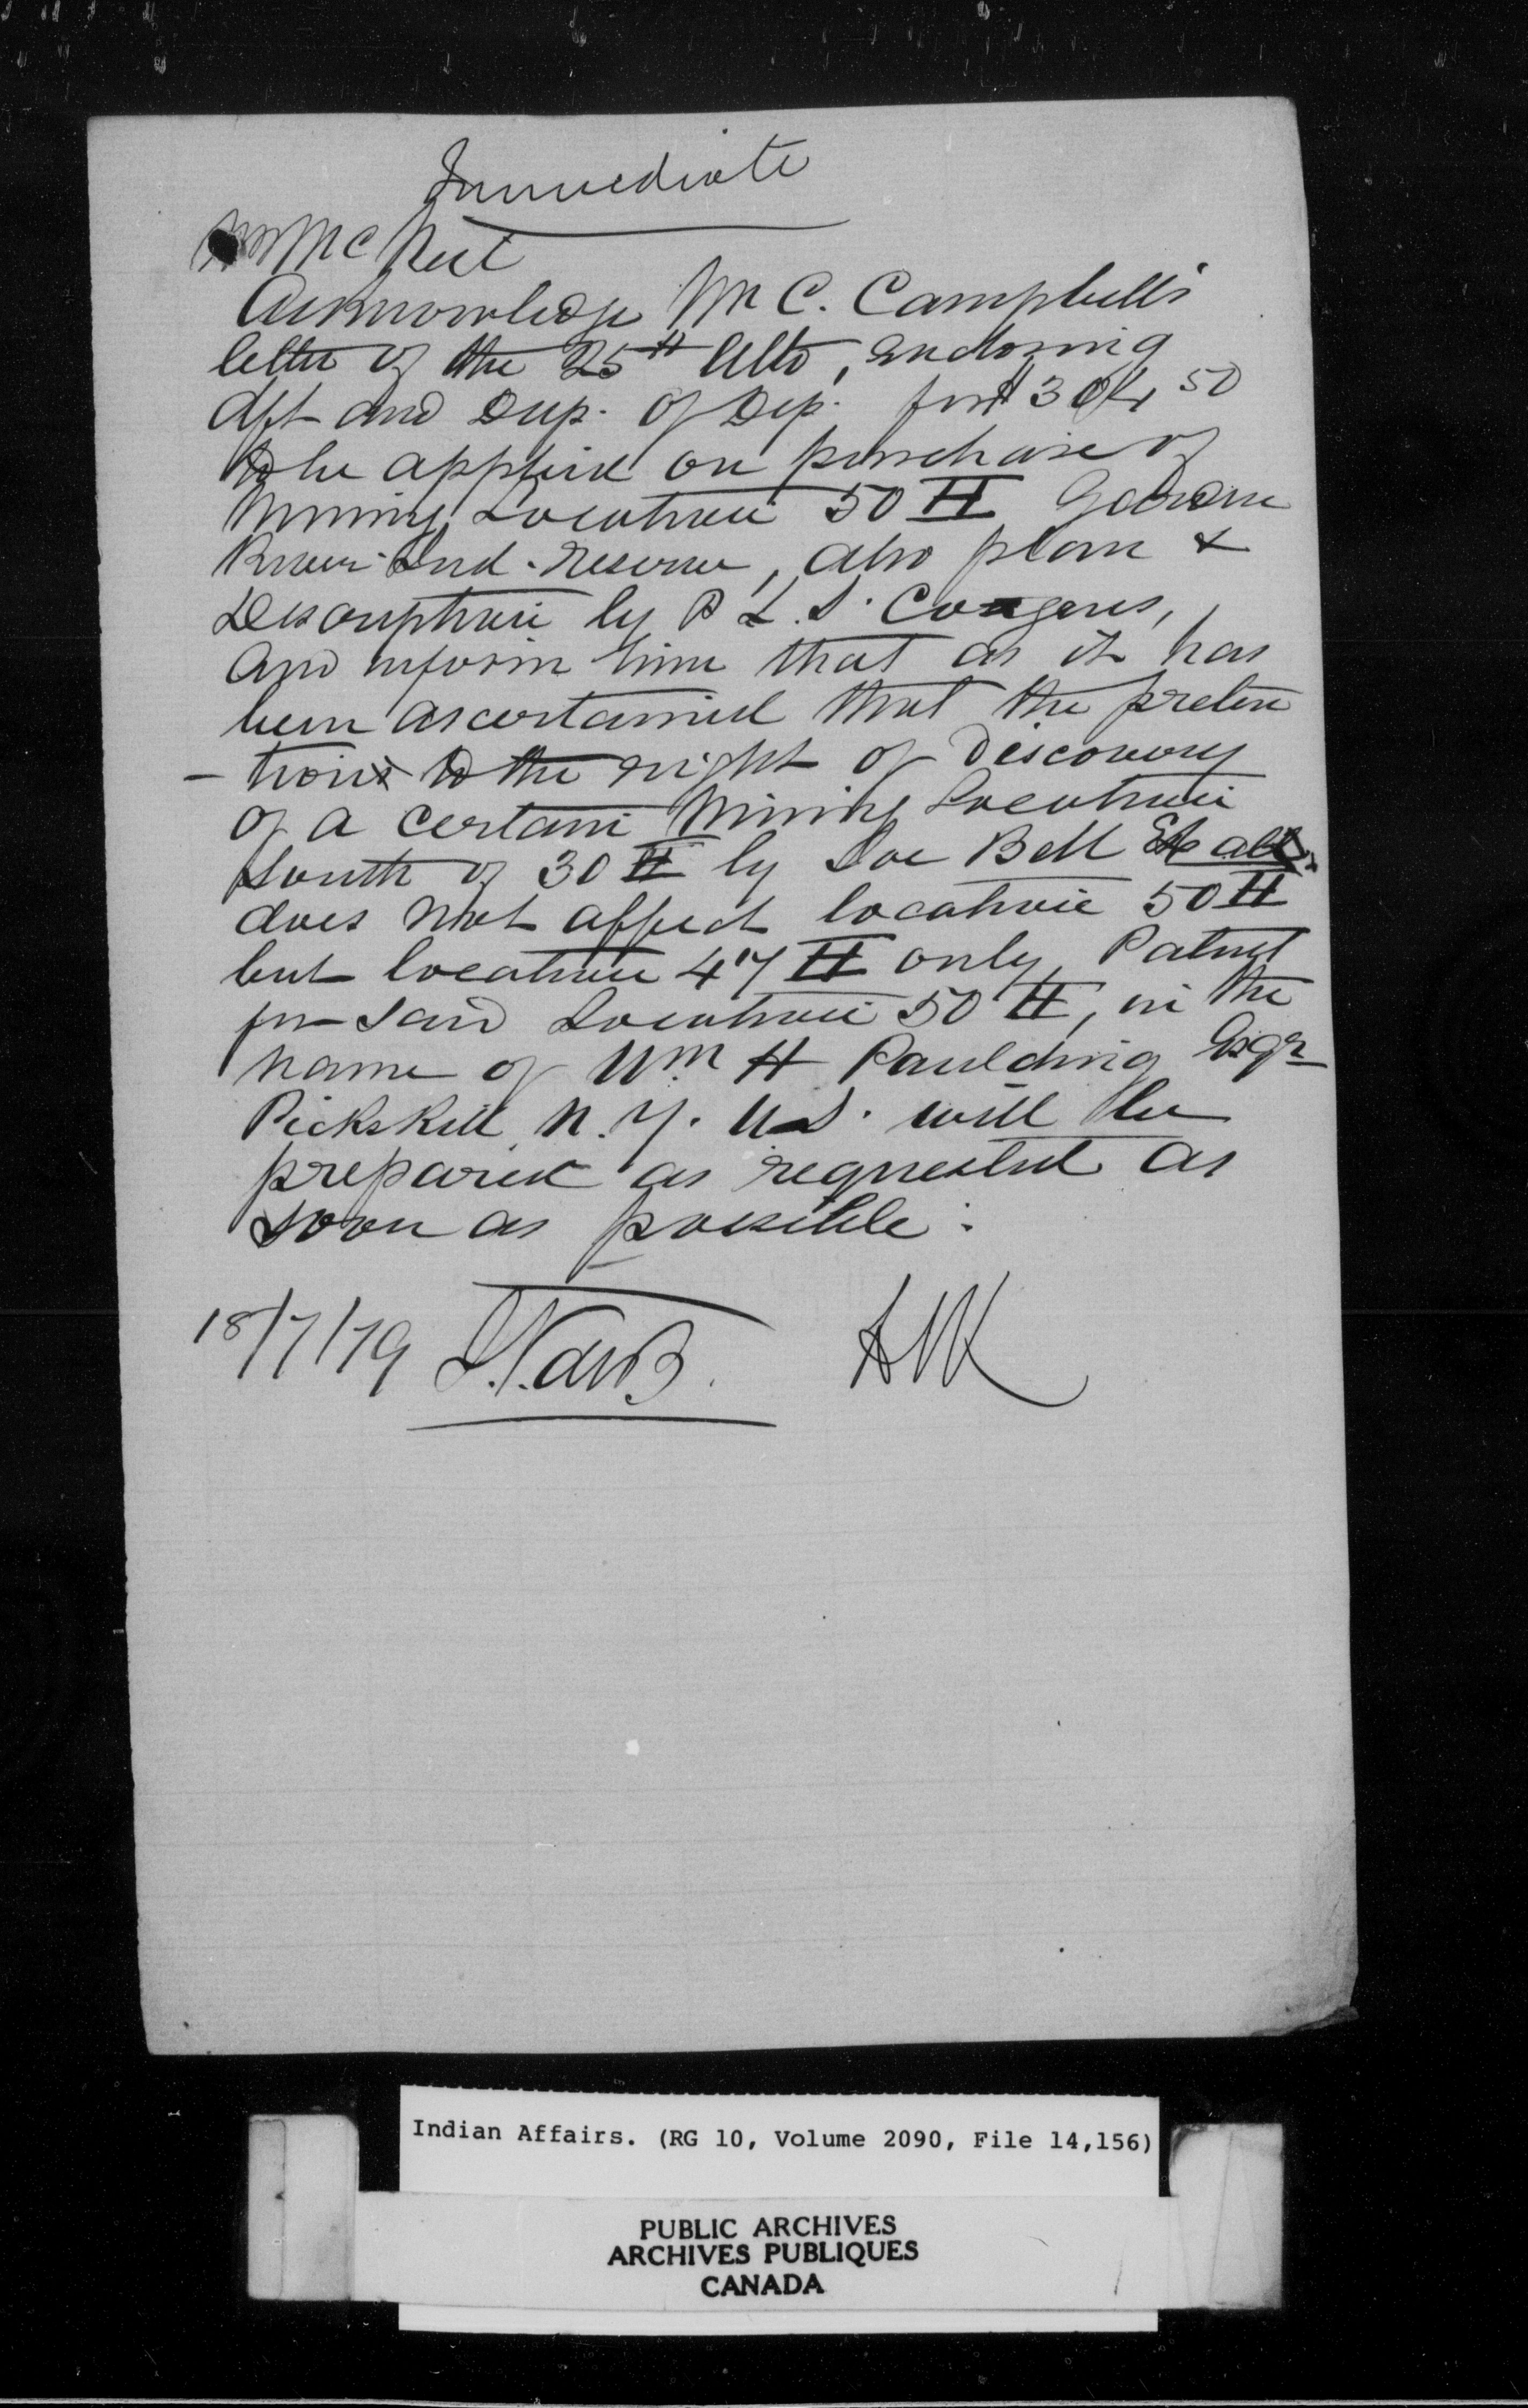 Immediate
Mr McNeil
Acknowledge Mr C. Campbell's
letter of the 25th Ulto, enclosing
dft and Dup. of Dep. for $304.50
to be applied on purchase of
Mining Location 50 H Garden
River Ind. reserve, also plan &
Description by P L. S.
and inform him that as it has
been ascertained that the preten
- tions to the right of Discovery
of a certain Mining Location
South of 30 H by Joe Bell Et al
does not affect location 50 H
but location 47 H only, Patent
for said Location 50 H, in the
name of Wm H Paulding Esqr
Pickskill N. Y. U.S. will be
prepared as requested as
soon as possible.
18/7/79
Indian Affairs. (RG 10, Volume 2090, File 14,156)
PUBLIC ARCHIVES
ARCHIVES PUBLIQUES
CANADA